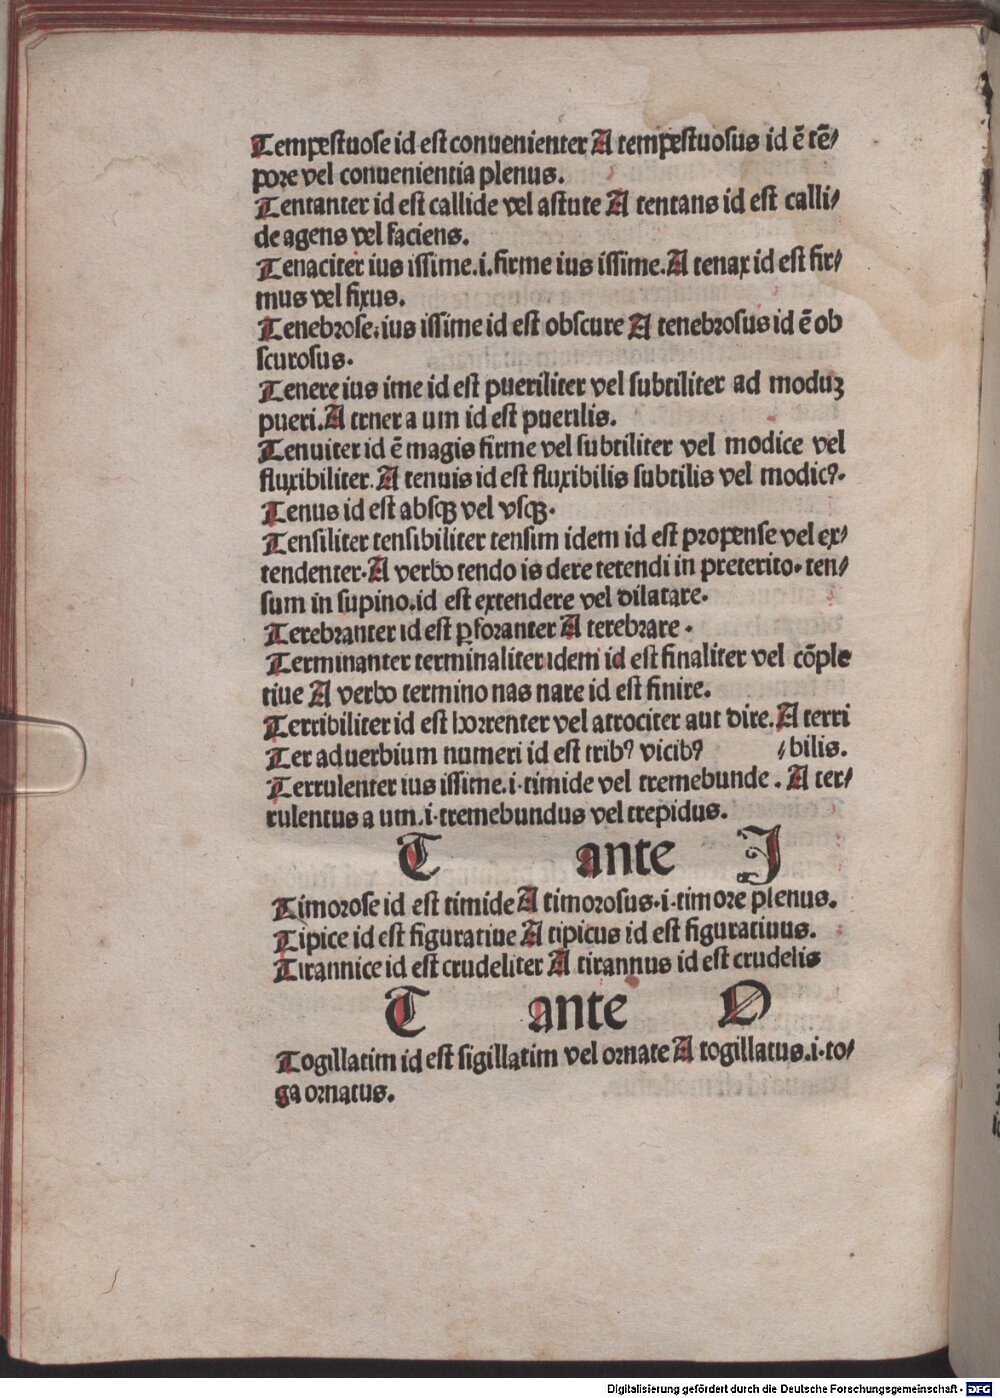 Tempestuose id est conuenienter A tempestuosus id ē tē⸗
pore vel conuenientia plenus.
Tentanter id est callide vel astute A tentans id est calli⸗
de agens vel faciens.
Tenaciter ius issime.i.firme ius issime.A tenax id est fir⸗
mus vel fixus.
Tenebrose.ius issime id est obscure A tenebrosus id ē ob
scurosus.
Tenere ius ime id est pueriliter vel subtiliter ad moduꝫ
pueri.A tener a um id est puerilis.
Tenuiter id ē magis firme vel subtiliter vel modice vel
fluxibiliter.A tenuis id est fluxibilis subtilis vel modicꝰ.
Tenus id est absqꝫ vel vsqꝫ.
Tensiliter tensibiliter tensim idem id est propense vel ex⸗
tendenter.A verbo tendo is dere tetendi in preterito.ten⸗
sum in supino.id est extendere vel dilatare.
Terebranter id est ꝑforanter A terebrare.
Terminanter terminaliter idem id est finaliter vel cōple
tiue A verbo termino nas nare id est finire.
Terribiliter id est horrenter vel atrociter aut dire.A terri
Ter aduerbium numeri id est tribꝰ vicibꝰ ⸗bilis.
Terrulenter ius issime.i.timide vel tremebunde.A ter⸗
rulentus a um.i.tremebundus vel trepidus.
T ante I
Timorose id est timide A timorosus.i.timore plenus.
Tipice id est figuratiue A tipicus id est figuratiuus.
Tirannice id est crudeliter A tirannus id est crudelis
T ante O
Togillatim id est sigillatim vel ornate A togillatus.i.to⸗
ga ornatus.
Digitalisierung gefördert durch die Deutsche Forschungsgemeinschaft - DFG